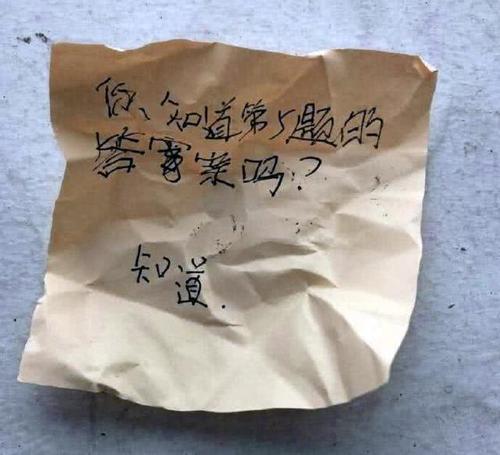 你、知道第5题的
答案案吗?
知道.